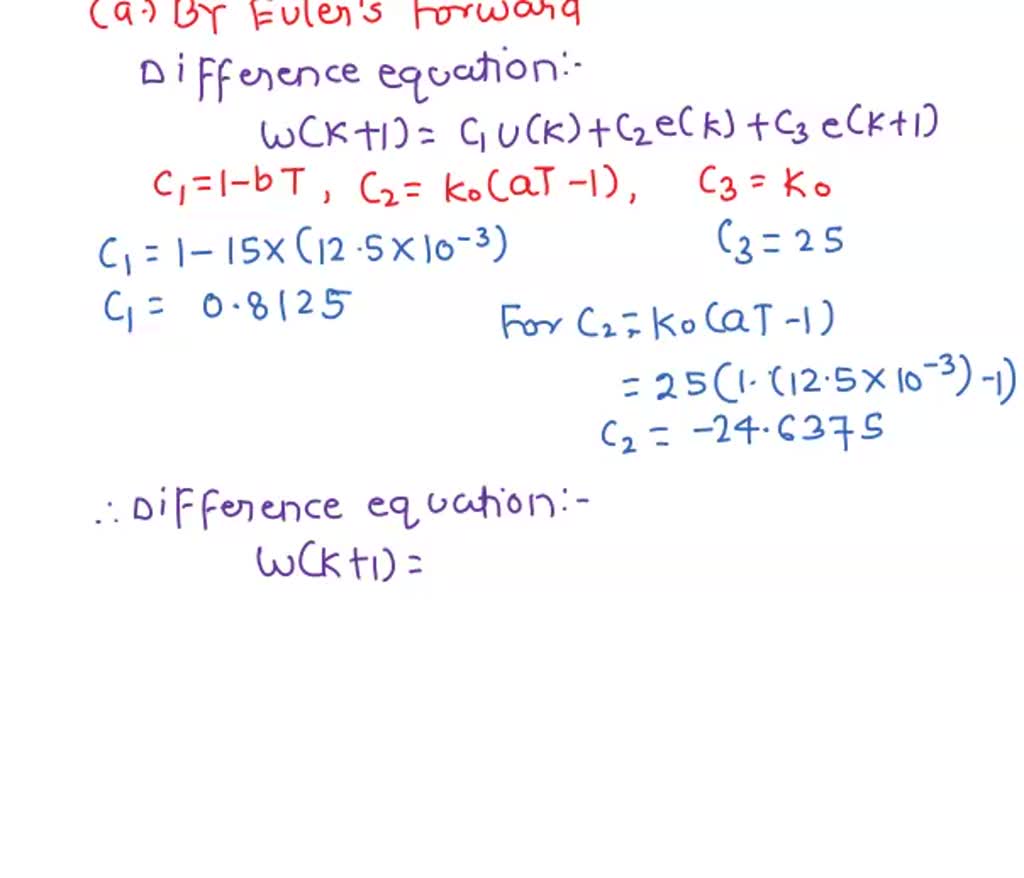 (a.) By Euler's Forward
Difference equation:-
w(k+1) = C₁u(k) + C₂e(k) + C₃e(k+1)
C₁ = 1-bT, C₂ = k₀(aT-1), C₃ = k₀
C₁ = 1 - 15×(12.5×10⁻³) C₃ = 25
C₁ = 0.8125
For C₂ = k₀(aT-1)
= 25(1.(12.5×10⁻³)-1)
C₂ = -24.6375
∴ Difference equation:-
w(k+1) =